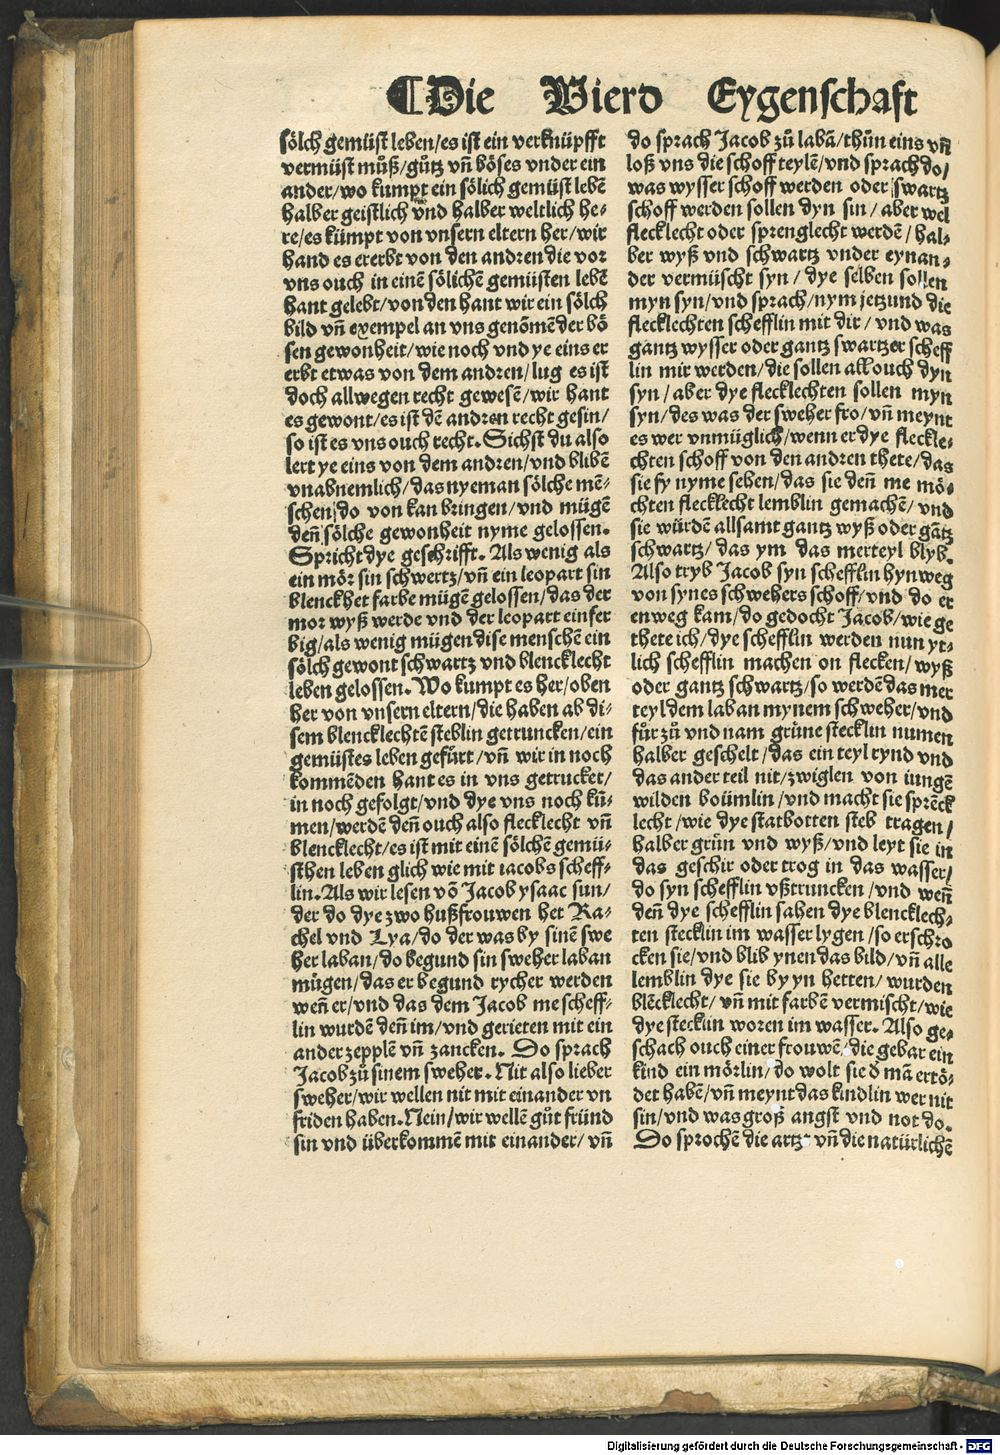 ¶Die Vierd Eygenschaft
sölch gemüst leben/es ist ein verknüpfft
vermüst můß/gůtz vñ böses vnder ein
ander/wo kumpt ein sölich gemüst lebē
halber geistlich vnd halber weltlich he⸗
re/es kümpt von vnsern eltern her/wir
hand es ererbt von den andren die vor
vns ouch in einē sölichē gemüsten lebē
hant gelebt/von den hant wir ein sölch
bild vñ exempel an vns genōmē der bö
sen gewonheit/wie noch vnd ye eins er
erbt etwas von dem andren/lug es ist
doch allwegen recht gewesē/wir hant
es gewont/es ist dē andren recht gesin/
so ist es vns ouch recht. Sichst du also
lert ye eins von dem andren/vnd blibē
vnabnemlich/das nyeman sölche mē⸗
schen do von kan bringen/vnd mügen
deñ sölche gewonheit nyme gelossen.
Spricht dye geschrifft. Als wenig als
ein mör sin schwertz/vñ ein leopart sin
blenckhet farbe mügē gelossen/das der
mor wyß werde vnd der leopart einfer
big/als wenig mügen dise menschē ein
sölch gewont schwartz vnd blencklecht
leben gelossen. Wo kumpt es her/oben
her von vnsern eltern/die haben ab di⸗
sem blencklechtē steblin getruncken/ein
gemüstes leben gefůrt/vñ wir in noch
kommēden hant es in vns getrucket/
in noch gefolgt/vnd dye vns noch kü⸗
men/werdē deñ ouch also flecklecht vñ
blencklecht/es ist mit einē sölchē gemü⸗
sthen leben glich wie mit iacobs scheff⸗
lin. Als wir lesen vō Jacob ysaac sun/
der do dye zwo hußfrouwen het Ra⸗
chel vnd Lya/do der was by sinē swe
her laban/do begund sin sweher laban
mügen/das er begund rycher werden
weñ er/vnd das dem Jacob me scheff⸗
lin wurdē deñ im/vnd gerieten mit ein
ander zepplē vñ zancken. Do sprach
Jacob zů sinem sweher. Nit also lieber
sweher/wir wellen nit mit einander vn
friden haben. Nein/wir wellē gůt fründ
sin vnd überkommē mit einander/vñ
do sprach Jacob zů labā/thůn eins vñ
loß vns die schoff teylē/vnd sprach do/
was wysser schoff werden oder swartz
schoff werden sollen dyn sin/aber wel
flecklecht oder sprenglecht werdē/hal⸗
ber wyß vnd schwartz vnder eynan⸗
der vermüscht syn/dye selben sollen
myn syn/vnd sprach/nym jetzund die
flecklechten schefflin mit dir/vnd was
gantz wysser oder gantz swartzer scheff
lin mir werden/die sollen all ouch dyn
syn/aber dye flecklechten sollen myn
syn/des was der sweher fro/vñ meynt
es wer vnmüglich/wenn er dye fleckle⸗
chten schoff von den andren thete/das
sie sy nyme sehen/das sie deñ me mö⸗
chten flecklecht lemblin gemachē/vnd
sie würdē allsamt gantz wyß oder gātz
schwartz/das ym das merteyl blyb.
Also tryb Jacob syn schefflin hynweg
von synes schwehers schoff/vnd do er
enweg kam/do gedocht Jacob/wie ge
thete ich/dye schefflin werden nun yt⸗
lich schefflin machen on flecken/wyß
oder gantz schwartz/so werdē das mer
teyl dem laban mynem schweher/vnd
fůr zů vnd nam grüne stecklin numen
halber geschelt/das ein teyl rynd vnd
das ander teil nit/zwiglen von iungē
wilden boümlin/vnd macht sie sprēck
lecht/wie dye statbotten steb tragen/
halber grün vnd wyß/vnd leyt sie in
das geschir oder trog in das wasser/
do syn schefflin vßtruncken/vnd weñ
deñ dye schefflin sahen dye blencklech⸗
ten stecklin im wasser lygen/so erschro
cken sie/vnd blib ynen das bild/vñ alle
lemblin dye sie by yn hetten/wurden
blēcklecht/vñ mit farbē vermischt/wie
dye stecklin woren im wasser. Also ge⸗
schach ouch einer frouwē/die gebar ein
kind ein mörlin/do wolt sie d̕ mā ertö⸗
det habē/vñ meynt das kindlin wer nit
sin/vnd was groß angst vnd not do.
Do sprochē die artz⸗ vñ die natürlichē
Digitalisierung gefördert durch die Deutsche Forschungsgemeinschaft - DFG